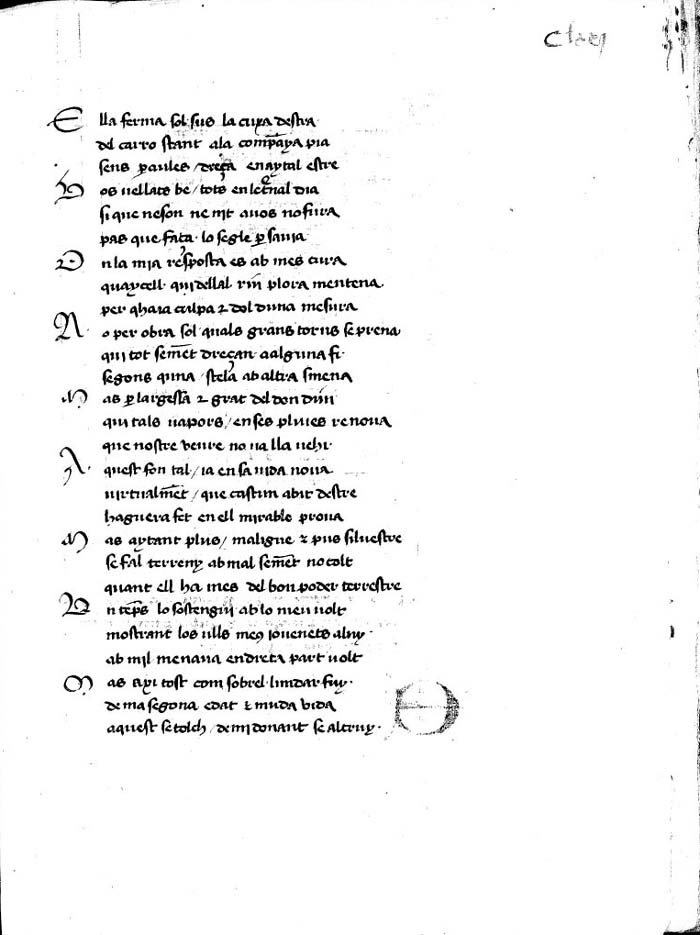 Ella ferma sol sus la cuxa destra
del carro stant ala compãya pia
sens paules / dreça en aytal estre
Uos uellats be / tots en letnal dia
si que neson ne nit auos no fura
pas que faça lo segle per sa uia
On la mia resposta es ab mes cura
quaycell qui dellal riu plora mentena
per qhaia culpa & dol duna mesura
No per obra sol quals grans torns se prena
qui tot semẽt dreçan a alguna fi
segons quina / stela ab altra smena
Mas per largessa & grat del don diuí
qui tals uapors / en ses pluies renoua
que nostre veure no ua lla uehi
Aquest fon tal / ia en sa uida noua
uirtualmẽt / que castun abit destre
haguera fet en ell mirable proua
Mas aytant plus / maligne & pus siluestre
se fal terreny ab mal semẽt no colt
quant ell ha mes del bon poder terrestre
Un tẽps lo sostengui ab lo meu uolt
mostrant los ulls meus iouenets a luy
ab mi l menaua en dreta part uolt
Mas axi tost com sobrel limdar fuy
de ma segona edat & muda vida
aquest se tolch / de mi donant se altruy